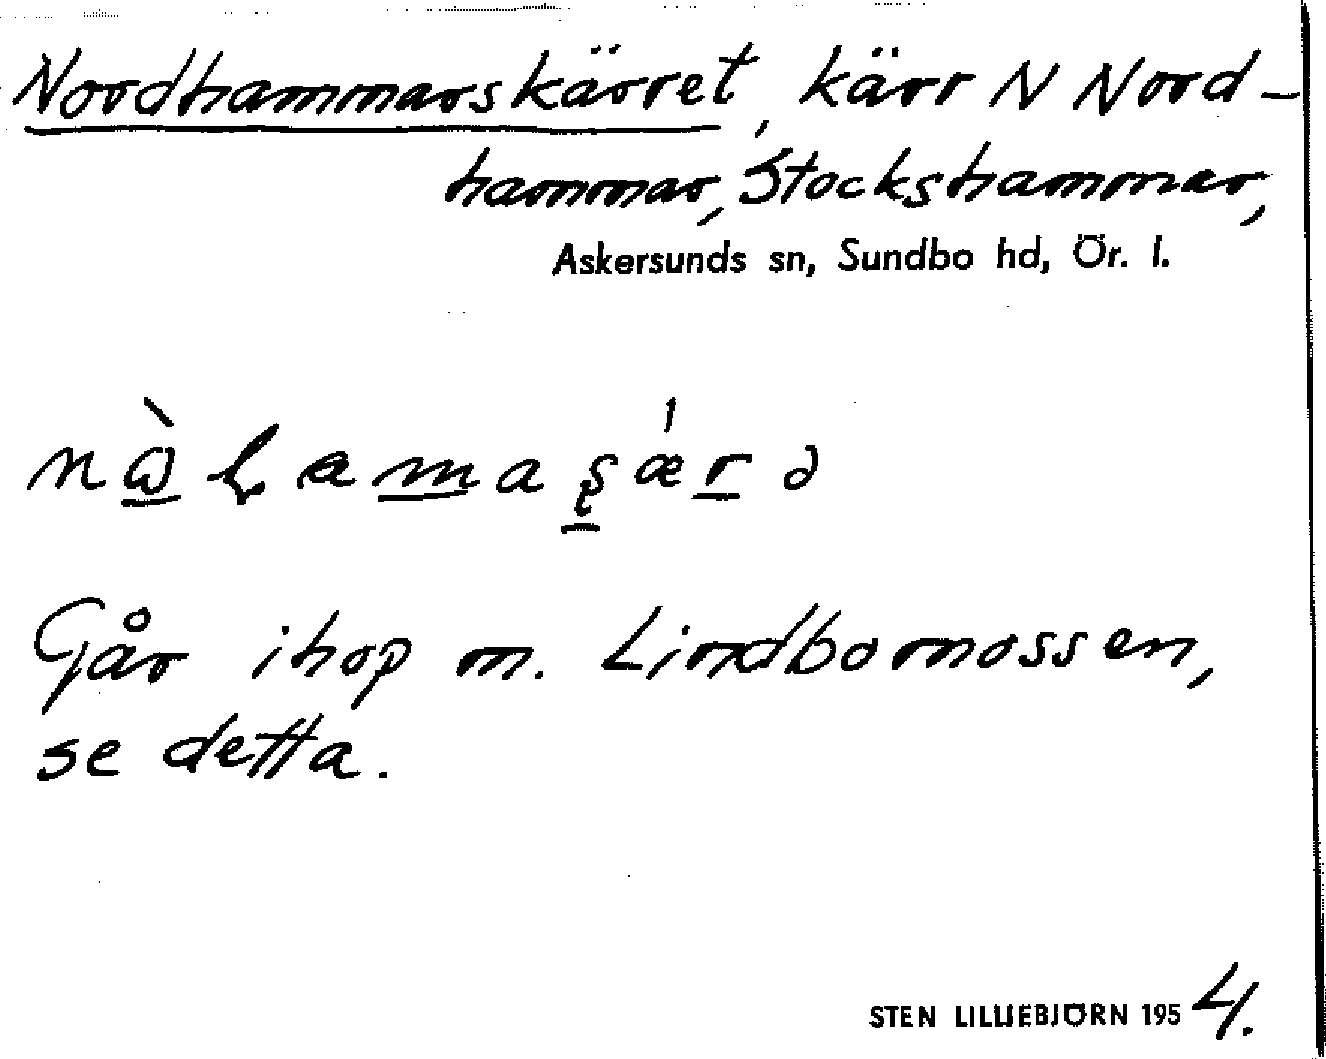 Nordhammarskärret, kärr N Nord-
hammar, Stockshammar,
Askersunds sn, Sundbo hd, Ör. l.
Går ihop m. Lindbomossen,
se detta.
STEN LILLIEBJÖRN 1954.